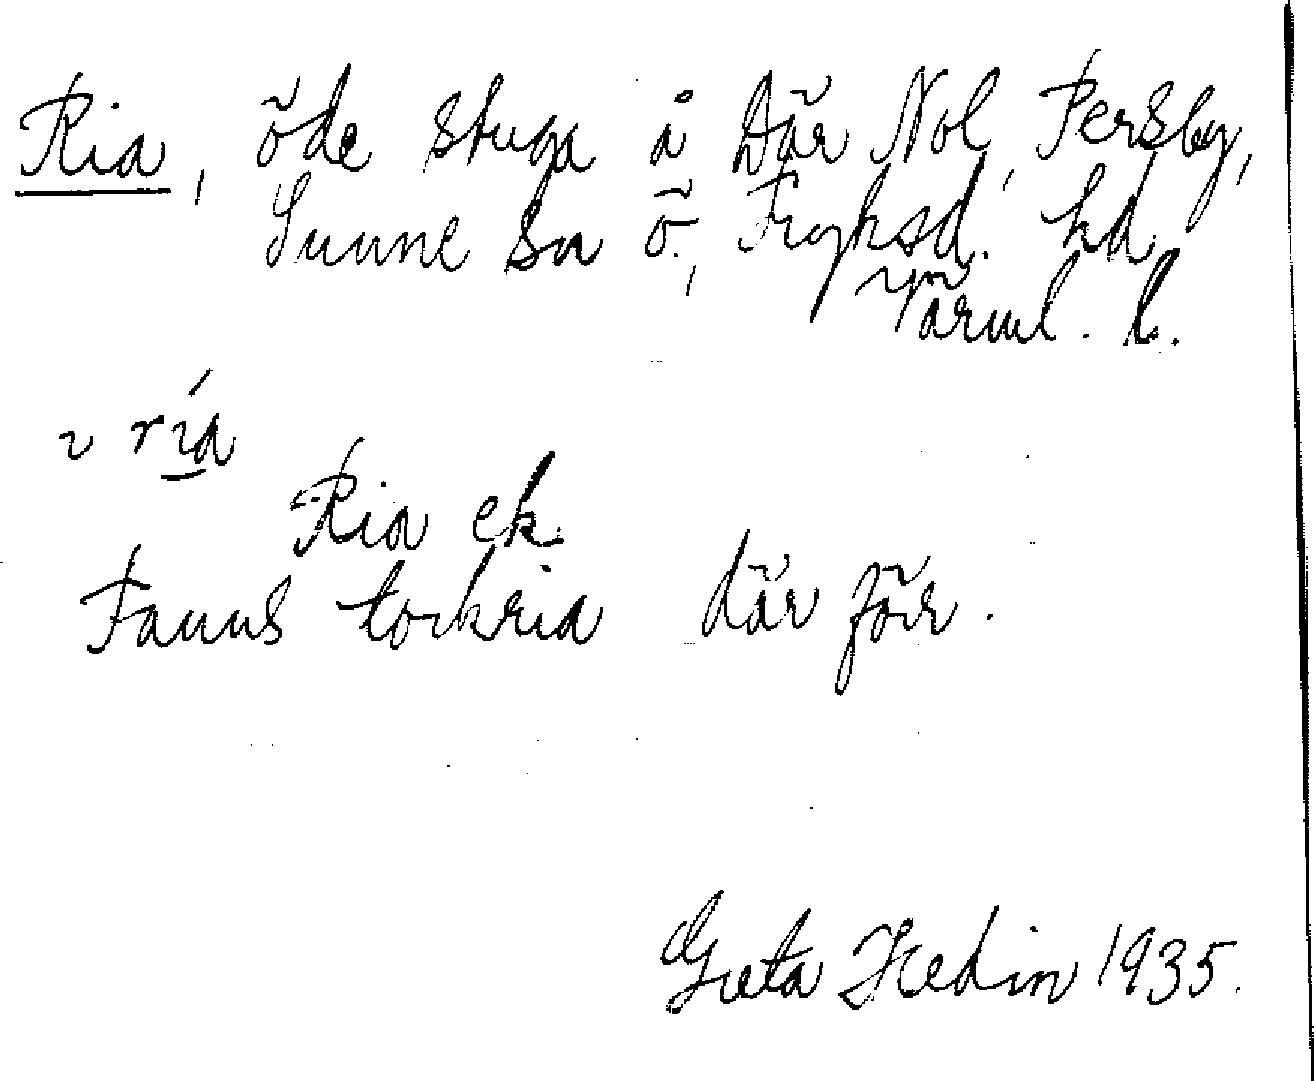 Ria, öde stuga å Där Nol, Persby,
Sunne sn ö., Fryksd. hd.
Värml. l.
i ría
Ria ek.
Fanns torkria där förr.
Greta Hedin 1935.